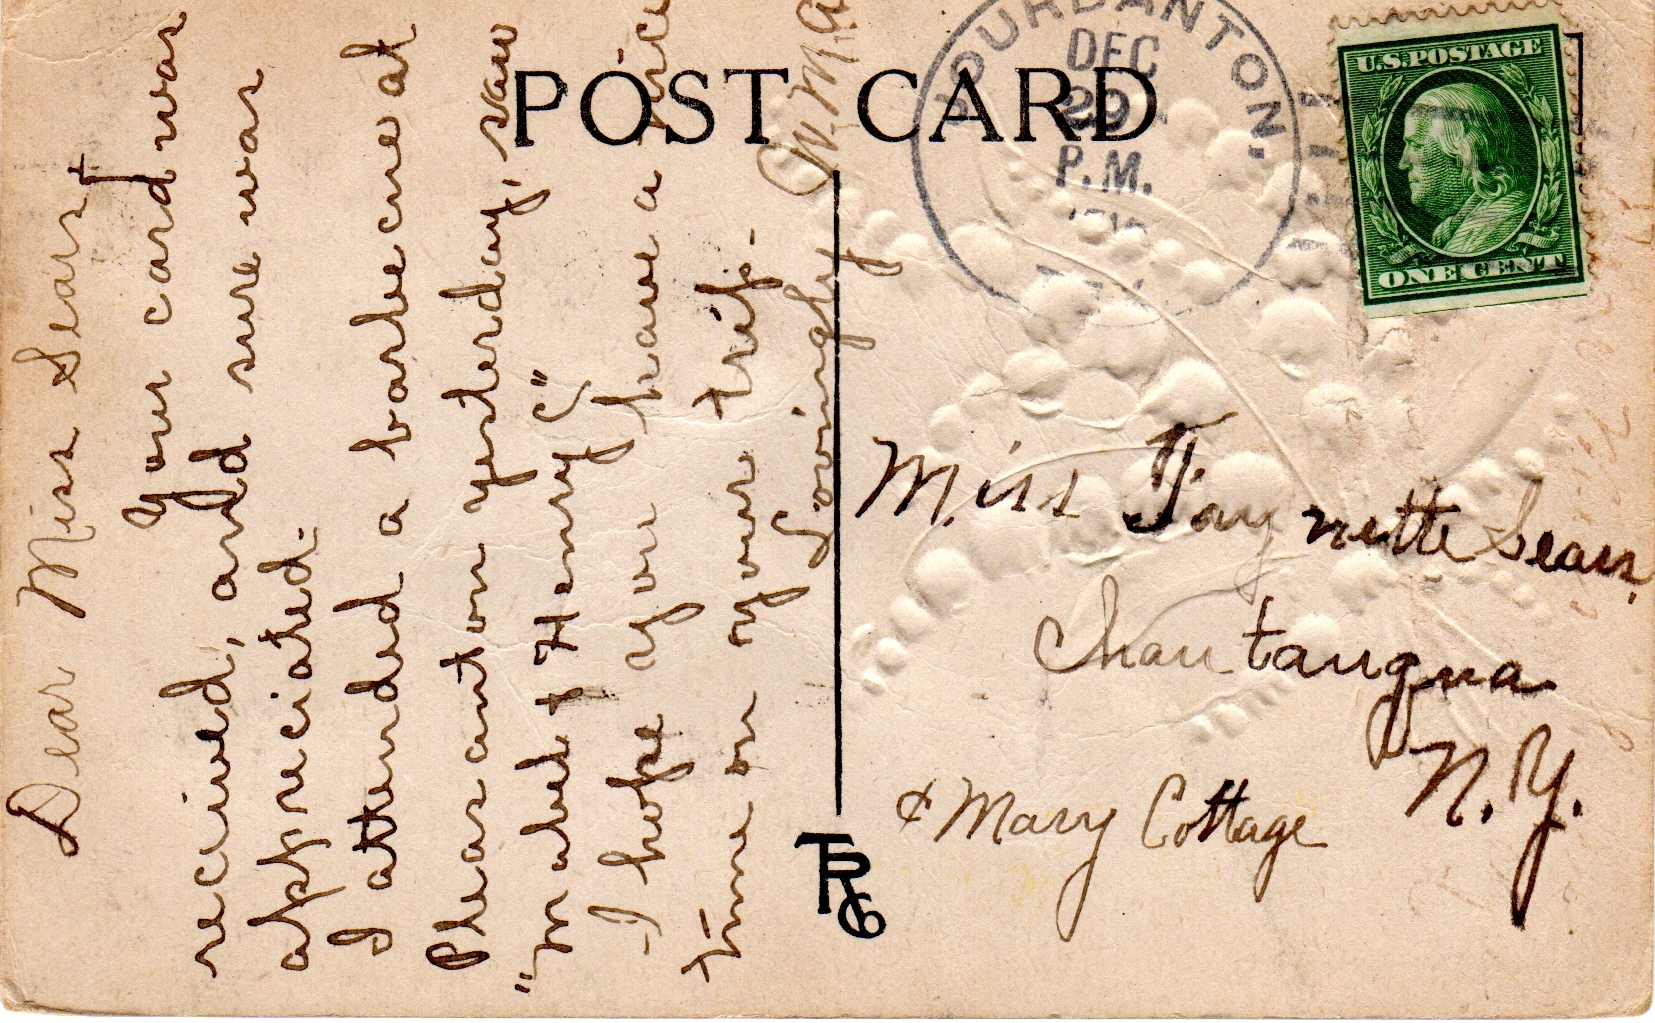 POST CARD
JOURDANTON,
DEC
29
P.M.
U.S. POSTAGE
ONE CENT
Dear Miss Sears†
Your card was
recived, and sure was
appreciated.
I attended a barbecue at
Pleasanton yesterday, saw
"Mabel & Henry C"
I hope you have a nice
time on your trip.
Lovingly
W.M.A
Miss Fay nette Sears,
Chautauqua
N.Y.
& Mary Cottage